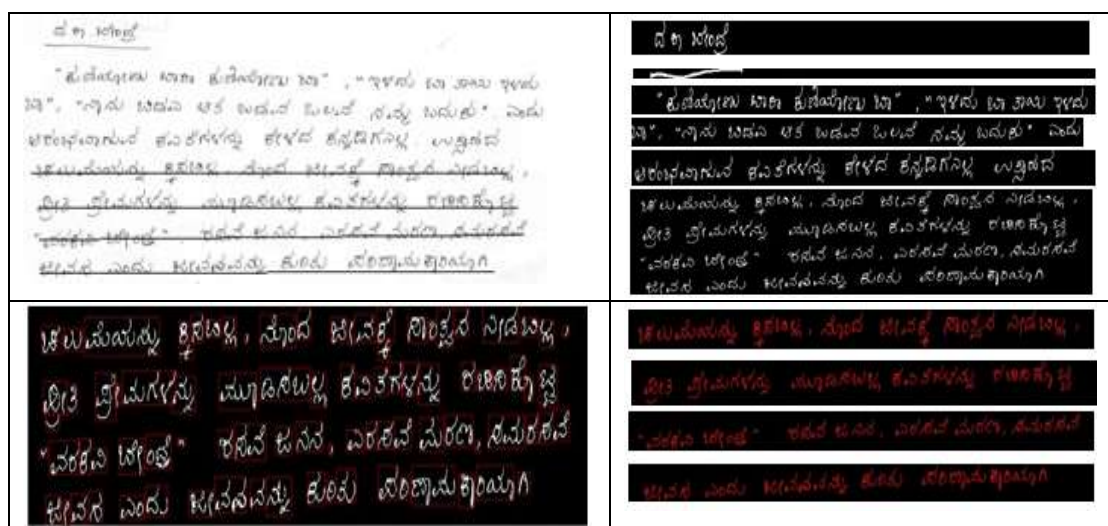 ದ ರಾ ಬೇಂದ್ರೆ
"ಕುಣಿಯೋಣು ಬಾರಾ ಕುಣಿಯೋಣು ಬಾ", "ಇಳಿದು ಬಾ ತಾಯಿ ಇಳಿದು
ಬಾ", "ನಾನು ಬಡವಿ ಆತ ಬಡವ ಒಲವೆ ನಮ್ಮ ಬದುಕು" ಎಂದು
ಆರಂಭವಾಗುವ ಕವಿತೆಗಳನ್ನು ಕೇಳದ ಕನ್ನಡಿಗನಿಲ್ಲ ಉತ್ಸಾಹದ
ಚಿಲುಮೆಯನ್ನು ನೊಂದ ಜೀವಕ್ಕೆ ಸಾಂತ್ವನ ನೀಡಬಲ್ಲ,
ಪ್ರೀತಿ ಪ್ರೇಮಗಳನ್ನು ಮೂಡಿಸಬಲ್ಲ ಕವಿತೆಗಳನ್ನು ರಚಿಸಿಕೊಟ್ಟ
"ವರಕವಿ ಬೇಂದ್ರೆ" ರಸವೆ ಜನನ, ವಿರಸವೆ ಮರಣ, ಸಮರಸವೆ
ಜೀವನ ಎಂದು ಜೀವನವನ್ನು ಕುರಿತು ಪರಿಣಾಮಕಾರಿಯಾಗಿ
ದ ರಾ ಬೇಂದ್ರೆ
"ಕುಣಿಯೋಣು ಬಾರಾ ಕುಣಿಯೋಣು ಬಾ", "ಇಳಿದು ಬಾ ತಾಯಿ ಇಳಿದು
ಬಾ", "ನಾನು ಬಡವಿ ಆತ ಬಡವ ಒಲವೆ ನಮ್ಮ ಬದುಕು" ಎಂದು
ಆರಂಭವಾಗುವ ಕವಿತೆಗಳನ್ನು ಕೇಳದ ಕನ್ನಡಿಗನಿಲ್ಲ ಉತ್ಸಾಹದ
ಚಿಲುಮೆಯನ್ನು ನೊಂದ ಜೀವಕ್ಕೆ ಸಾಂತ್ವನ ನೀಡಬಲ್ಲ,
ಪ್ರೀತಿ ಪ್ರೇಮಗಳನ್ನು ಮೂಡಿಸಬಲ್ಲ ಕವಿತೆಗಳನ್ನು ರಚಿಸಿಕೊಟ್ಟ
"ವರಕವಿ ಬೇಂದ್ರೆ" ರಸವೆ ಜನನ, ವಿರಸವೆ ಮರಣ, ಸಮರಸವೆ
ಜೀವನ ಎಂದು ಜೀವನವನ್ನು ಕುರಿತು ಪರಿಣಾಮಕಾರಿಯಾಗಿ
ಚಿಲುಮೆಯನ್ನು ನೊಂದ ಜೀವಕ್ಕೆ ಸಾಂತ್ವನ ನೀಡಬಲ್ಲ,
ಪ್ರೀತಿ ಪ್ರೇಮಗಳನ್ನು ಮೂಡಿಸಬಲ್ಲ ಕವಿತೆಗಳನ್ನು ರಚಿಸಿಕೊಟ್ಟ
"ವರಕವಿ ಬೇಂದ್ರೆ" ರಸವೆ ಜನನ, ವಿರಸವೆ ಮರಣ, ಸಮರಸವೆ
ಜೀವನ ಎಂದು ಜೀವನವನ್ನು ಕುರಿತು ಪರಿಣಾಮಕಾರಿಯಾಗಿ
ಚಿಲುಮೆಯನ್ನು ನೊಂದ ಜೀವಕ್ಕೆ ಸಾಂತ್ವನ ನೀಡಬಲ್ಲ,
ಪ್ರೀತಿ ಪ್ರೇಮಗಳನ್ನು ಮೂಡಿಸಬಲ್ಲ ಕವಿತೆಗಳನ್ನು ರಚಿಸಿಕೊಟ್ಟ
"ವರಕವಿ ಬೇಂದ್ರೆ" ರಸವೆ ಜನನ, ವಿರಸವೆ ಮರಣ, ಸಮರಸವೆ
ಜೀವನ ಎಂದು ಜೀವನವನ್ನು ಕುರಿತು ಪರಿಣಾಮಕಾರಿಯಾಗಿ